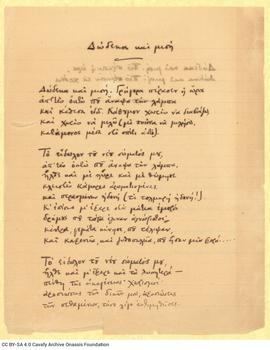 Δώδεκα και μισή
Δώδεκα και μισή. Γρήγορα πέρασεν η ώρα
απ' τες εννιά που άναψα την λάμπα
και κάθισα εδώ. Κάθουμουν χωρίς να διαβάζω
και χωρίς να μιλώ (με ποιόνα να μιλήσω,
κατάμονος μέσα στο σπίτι αυτό).
Το είδωλον του νέου σώματός μου,
απ' τες εννιά που άναψα την λάμπα,
ήλθε και με ηύρε και με θύμησε
κλειστές κάμαρες αρωματισμένες
και περασμένην ηδονή (τι τολμηρή ηδονή!).
Κ' επίσης μ' έφερε στα μάτια εμπρός
δρόμους που τώρα έγιναν αγνώριστοι,
κέντρα, γεμάτα κίνησι, που τέλεψαν,
και καφενεία και που ήσαν μια
Το είδωλον του νέου σώματός μου,
ήλθε και μ' έφερε και τα λυπητερά·
πένθη της οικογένειας, χωρισμοί,
αισθήματα των δικών μου, αισθήματα
των πεθαμένων, τόσο λίγο
CC BY-SA 4.0 Cavafy Archive Onassis Foundation